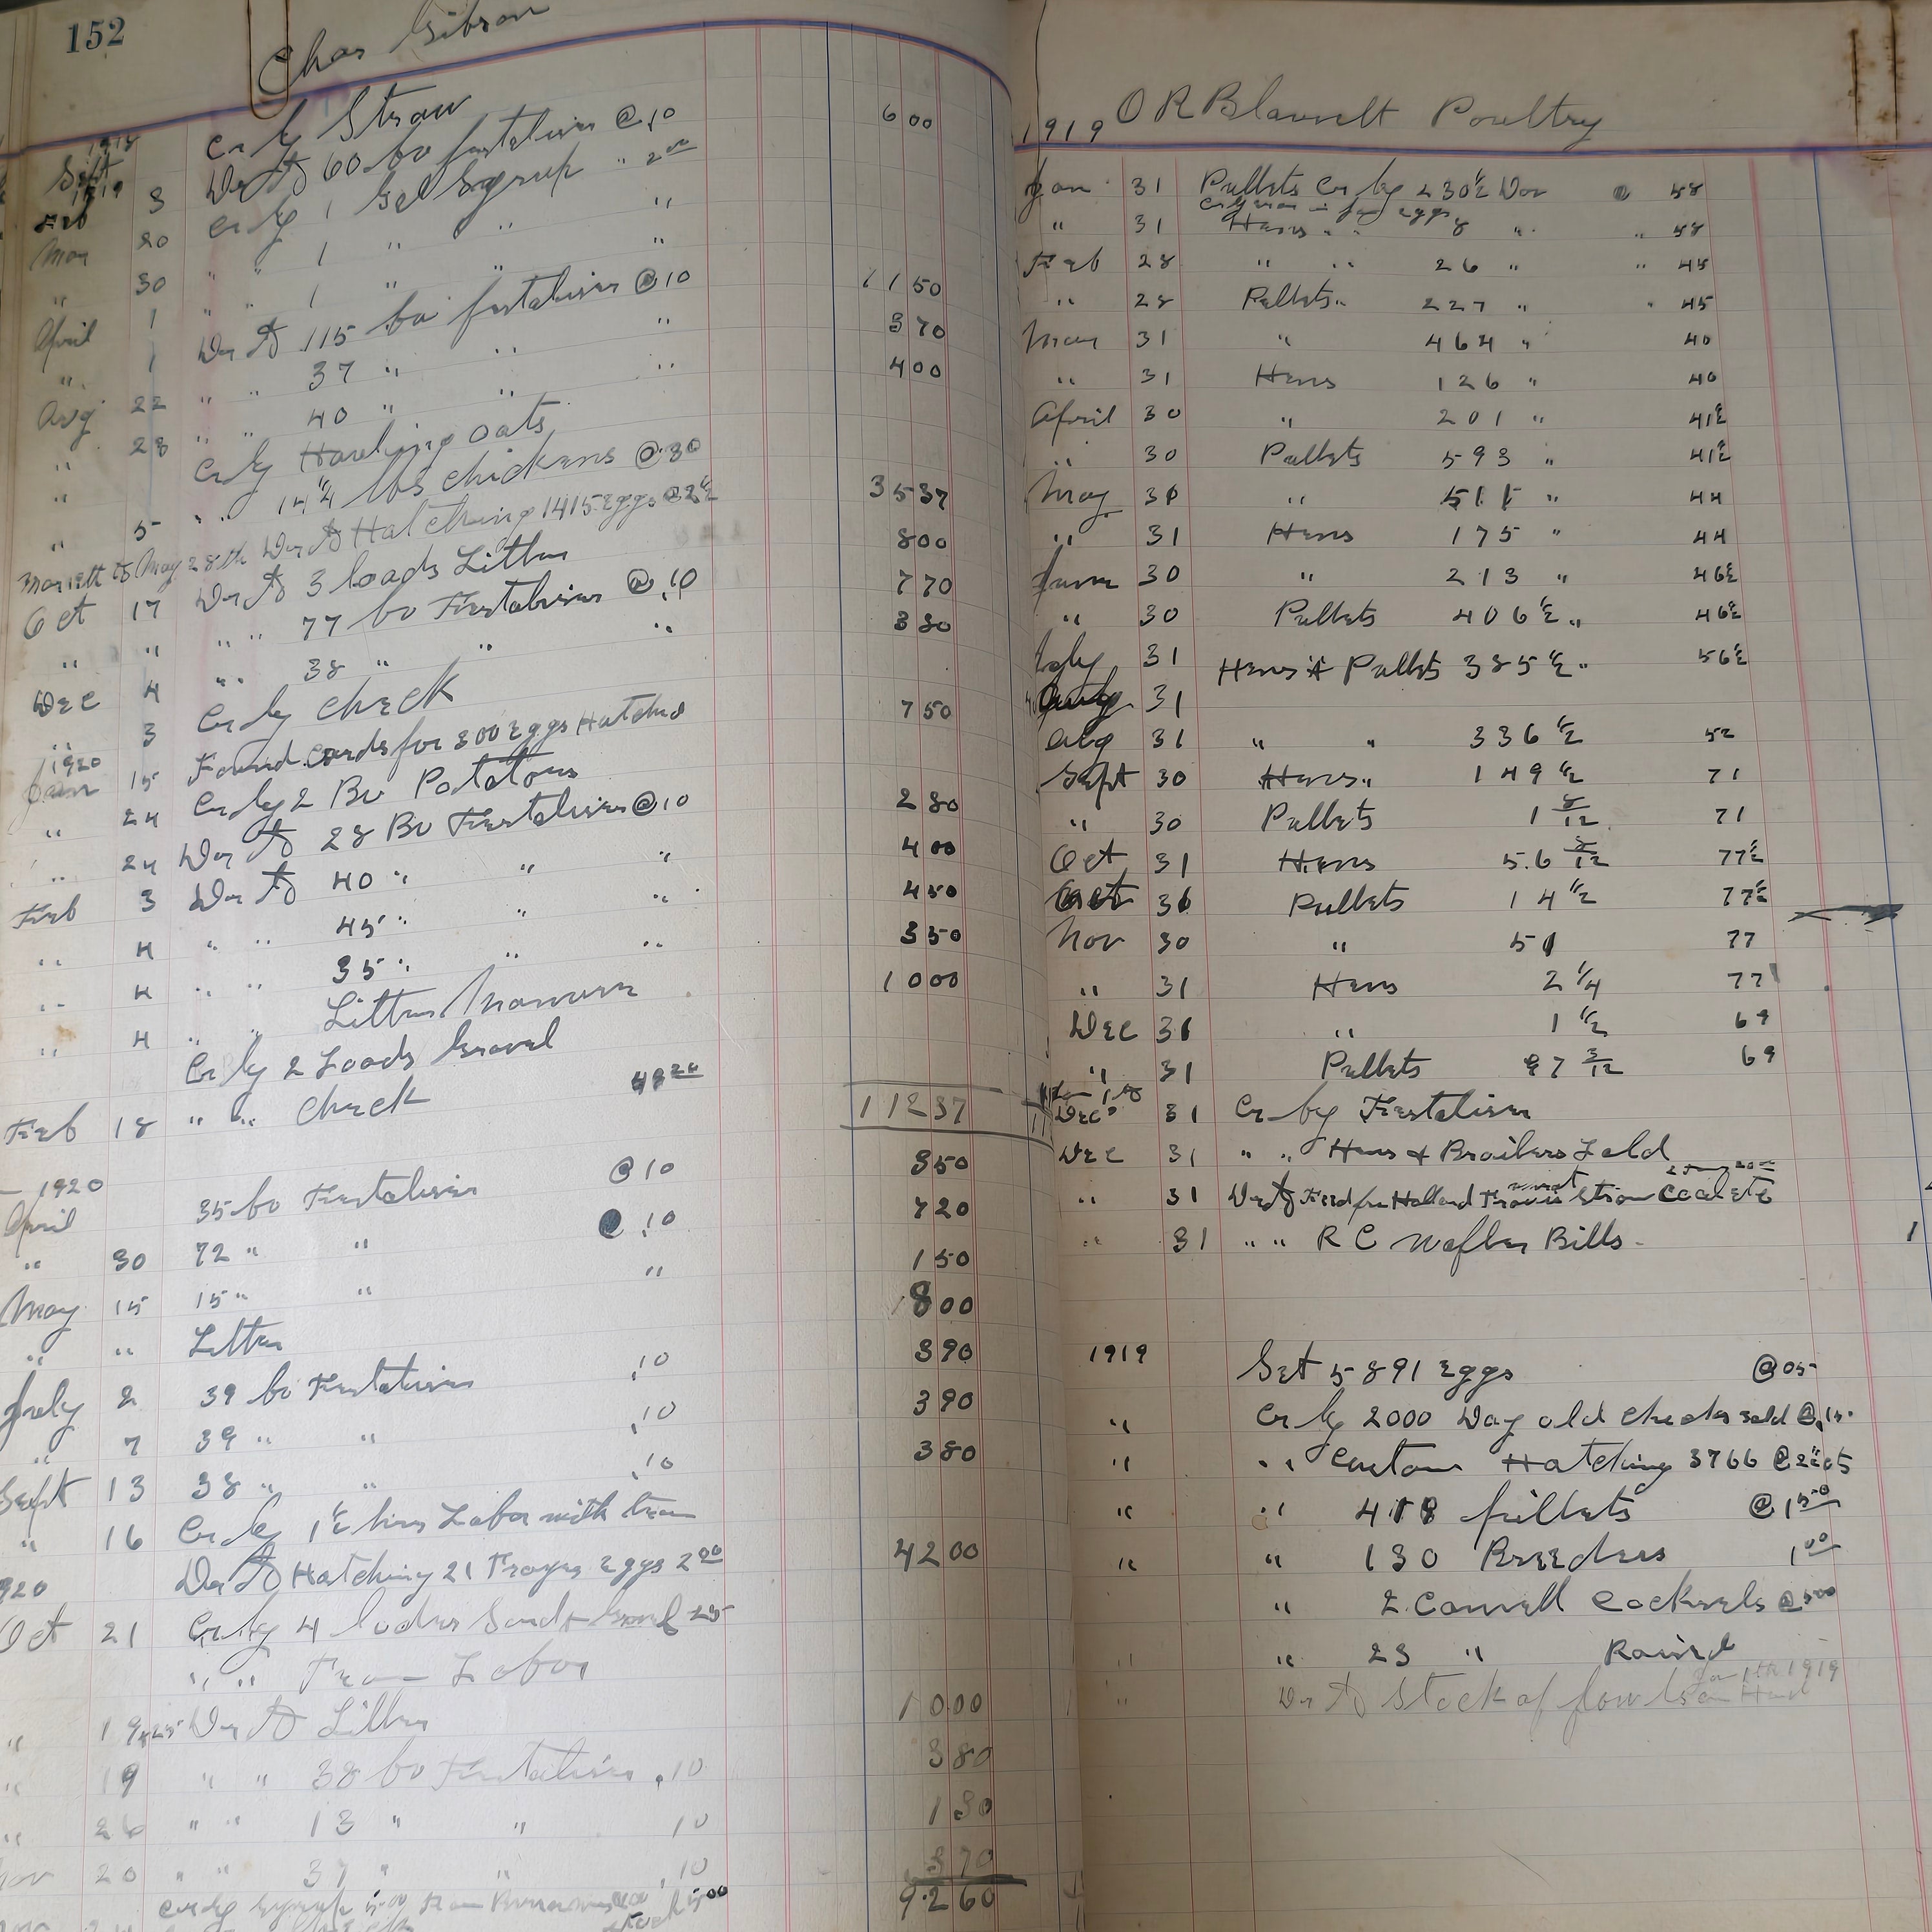 152
Chas Gibson
1918
Sept Cr by Straw
1919
Feb 3 Dr to 60 bu fertaliser @ .10 6 00
Mar 20 Cr by 1 Gal Syrup " 2 00
" 30 " " 1 " " "
April 1 " " 1 " "
" 1 Dr to 115 bu fertaliser @ 10 11 50
Aug 22 " " 37 " " " 3 70
" 28 " " 40 " " " 4 00
" Cr by Hauling oats
" 5 " " 14 1/4 lbs chickens @ 30
Mar 12th to May 28th Dr to Hatching 1415 Eggs @ 2 1/2 35 37
Oct 17 Dr to 3 loads Litter 8 00
" " " " 77 bu Fertaliser @ .10 7 70
Dec 4 " " 38 " " " 3 80
" 3 Cr by check
1920
Jan 15 Found cards for 300 Eggs Hatched 7 50
" 24 Cr by 2 Bu Potatoes
" 24 Dr to 28 Bu Fertaliser @ 10 2 80
Feb 3 Dr to 40 " " " 4 00
" 4 " " 45 " " " 4 50
" 4 " " 35 " " " 3 50
" 4 " " Litter Manure 10 00
Cr by 2 Loads Gravel
Feb 18 " " check
112 37
1920
April 35 bu Fertaliser @ 10 3 50
" 30 72 " " @ .10 7 20
May 15 15 " " " 1 50
" " Litter 8 00
July 2 39 bu Fertaliser .10 3 90
" 7 39 " " .10 3 90
Sept 13 38 " " .10 3 80
" 16 Cr by 1 1/2 hrs Labor with team
920 Dr to Hatching 21 Trays Eggs 2 00 42 00
Oct 21 Cr by 4 loads Sand + Gravel 25
" " Team Labor
" 19 + 25 Dr to Litter 10 00
" 19 " " 38 bu Fertaliser .10 3 80
" 26 " " 13 " " 10 1 30
Nov 20 " " 37 " " .10 3 70
Cr by Syrup
92 60
1919 O R Blauvelt Poultry
Jan 31 Pullets Cr by 230 1/2 Doz @ 58
" 31 Hens " " 8 " " 58
Feb 28 " " 26 " " 45
" 28 Pullets " 227 " " 45
Mar 31 " 464 " 40
" 31 Hens 126 " 40
April 30 " 201 " 41 1/2
" 30 Pullets 593 " 41 1/2
May 31 " 511 " 44
" 31 Hens 175 " 44
June 30 " 213 " 46 1/2
" 30 Pullets 406 1/2 " 46 1/2
July 31 Hens + Pullets 385 1/2 " 56 1/2
31
Aug 31 " " 336 1/2 52
Sept 30 Hens " 149 1/2 71
" 30 Pullets 1 8/12 71
Oct 31 Hens 56 8/12 77 1/2
Oct 31 Pullets 14 1/2 77 1/2
Nov 30 " 51 77
" 31 Hens 2 1/4 77
Dec 31 " 1 1/2 69
" 31 Pullets 97 3/12 69
Jan 1 to
Dec 31 Cr by Fertaliser
Dec 31 " " Hens + Broilers Sold
" 31 Dr to Feed for Holland Straw Coal etc
" 31 " " R C Bills
1919 Set 5891 Eggs @ 05
" Cr by 2000 Day old chicks sold @ .15
" " Custom Hatching 3766 @ 2 1/2 cts
" " 418 pullets @ 1 50
" " 130 Breeders 1 00
" 2 Cornell Cockrels @ 5 00
" 23 " Raised
Jan 1th 1919
" Dr to Stock of fowls on Hand